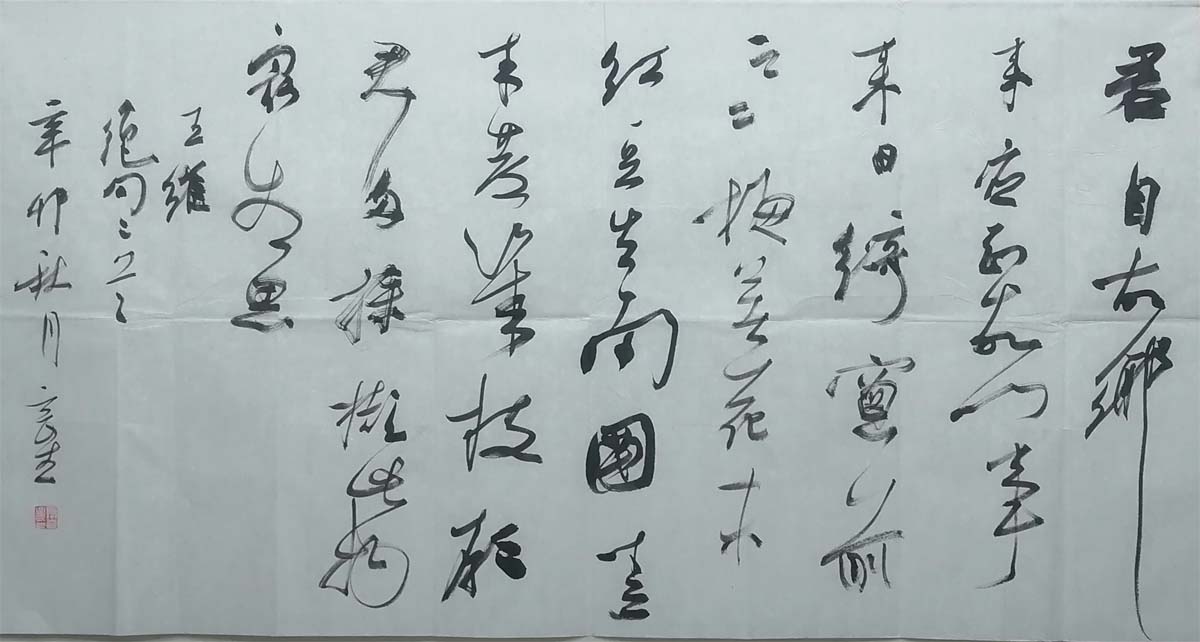 君自故鄉
来应知故乡事
来日綺窗前
寒梅著花未
红豆生南國春
来發幾枝願
君多採擷此物
最相思
王維
绝句二首
辛卯秋月